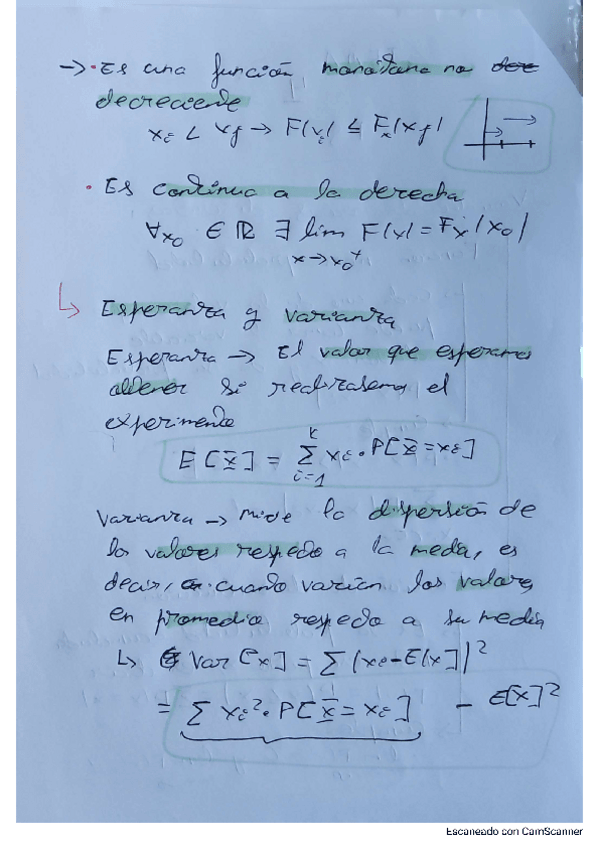 → · Es una función monótona no dec
decreciente
xi < xj → F(xi) ≤ Fx(xj)
· Es continua a la derecha
∀x0 ∈ ℝ ∃ lim F(x) = Fx(x0)
x→x0+
↳ Esperanza y varianza
Esperanza → El valor que esperamos
obtener si realizasemos el
experimento
k
E[X] = Σ xi · P[X = xi]
i=1
Varianza → mide la dispersión de
los valores respecto a la media, es
decir, cuando varían los valores
en promedio respecto a su media
↳ Var[x] = Σ (xi - E[x])²
= Σ xi² · P[X = xi] - E[X]²
Escaneado con CamScanner